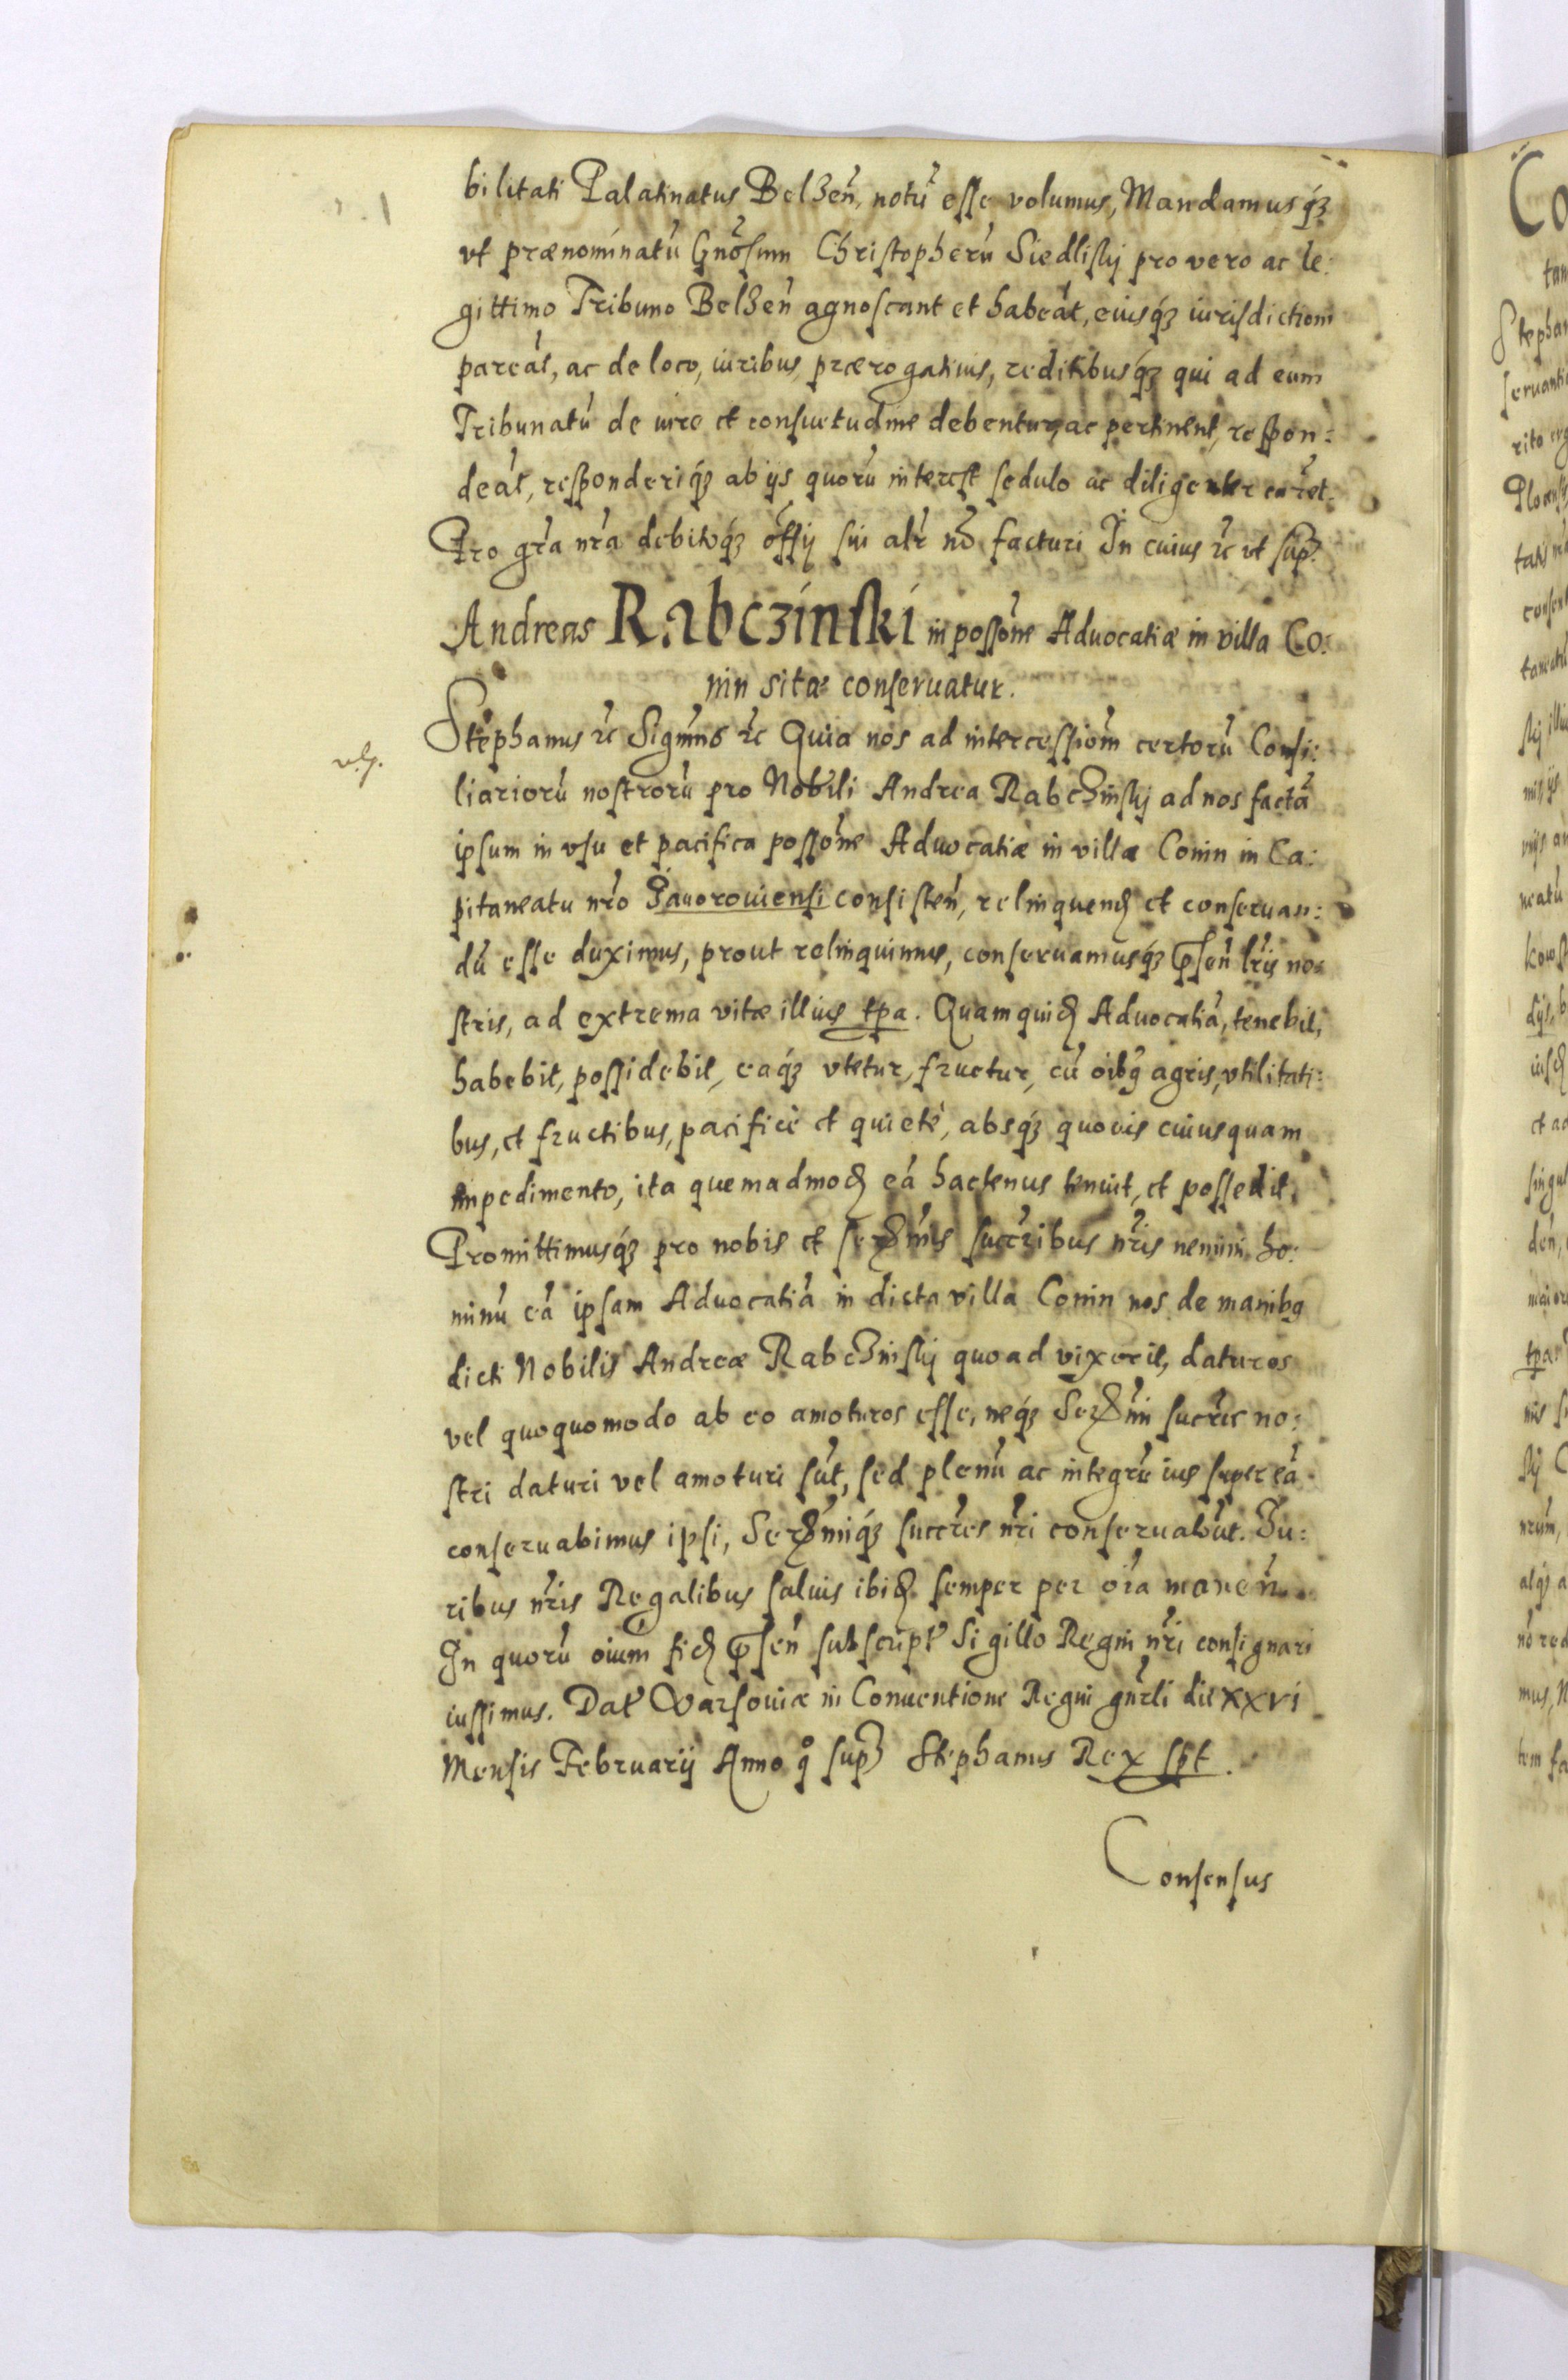 bilitati Palatinatus Belzeñ, notũ esse volumus, Mandamusq́ꝫ
vt prænominatũ Gnõsum Christopherũ Siedliskj pro vero ac le:
gittimo Tribuno Belzeñ agnoscant et habeãt, eiusq́ꝫ iurisdictioni
pareãt, ac de loco, iuribus prærogatiuis, reditibusq́ꝫ qui ad eum
Tribunatũ de iure et consuetudine debentur, ac pertinent, respon:
deãt, responderiq́ꝫ ab ijs quorũ interest sedulo ac diligenter curẽt.
Pro gr̃a nr̃a debitoq́ꝫ offij sui alr̃ nõ facturi In cuius ꝛc vt sup̃
Andreas Rabczinski in possõne Aduocatiæ in villa Co:
nin sitæ conseruatur.
Stephanus ꝛc Signms ꝛc Quia nos ad intercessiom̃ certorũ Consi:
liariorũ nostrorũ pro Nobili Andrea Rabczinskj ad nos factã
ipsum in vsu et pacifica possõne Aduocatiæ in villa Conin in Ca:
pitaneatu nr̃o Jauorouiensi consisteñ, relinquend et conseruan:
dũ esse duximus, prout relinquimus, conseruamusq́ꝫ p̃señ lr̃is no:
stris, ad extrema vitæ illius tpa. Quam quid Aduocatiã, tenebit,
habebit, possidebit, eaq́ꝫ vtetur, fruetur, cũ oĩbꝯ agris, vtilitati:
bus, et fructibus, pacificè et quietè, absq́ꝫ quouis cuiusquam
impedimento, ita quemadmod eã hactenus tenuit, et possedit.
Promittimusq́ꝫ pro nobis et serꝫmis succr̃ibus nr̃is nemini ho:
minũ eã ipsam Aduocatiã in dicta villa Conin nos de manibꝯ
dicti Nobilis Andreæ Rabczinskj quoad vixerit, daturos
vel quoquomodo ab eo amoturos esse, neq́ꝫ Serꝫmi succr̃es no:
stri daturi vel amoturi sũt, sed plenũ ac integrũ ius super eã
conseruabimus ipsi, Serꝫmiq́ꝫ succr̃es nr̃i conseruabũt. Iu:
ribus nr̃is Regalibus saluis ibid semper per oĩa maneñ.
In quorũ oĩum fid p̃señ subscript̃ Sigillo Regni nr̃i consignari
iussimus. Dat̃ Warsouiæ in Conuentione Regni gnr̃li die xxvi
Mensis Februarij Anno q̊ sup̃ Stephanus Rex spt.
Consensus